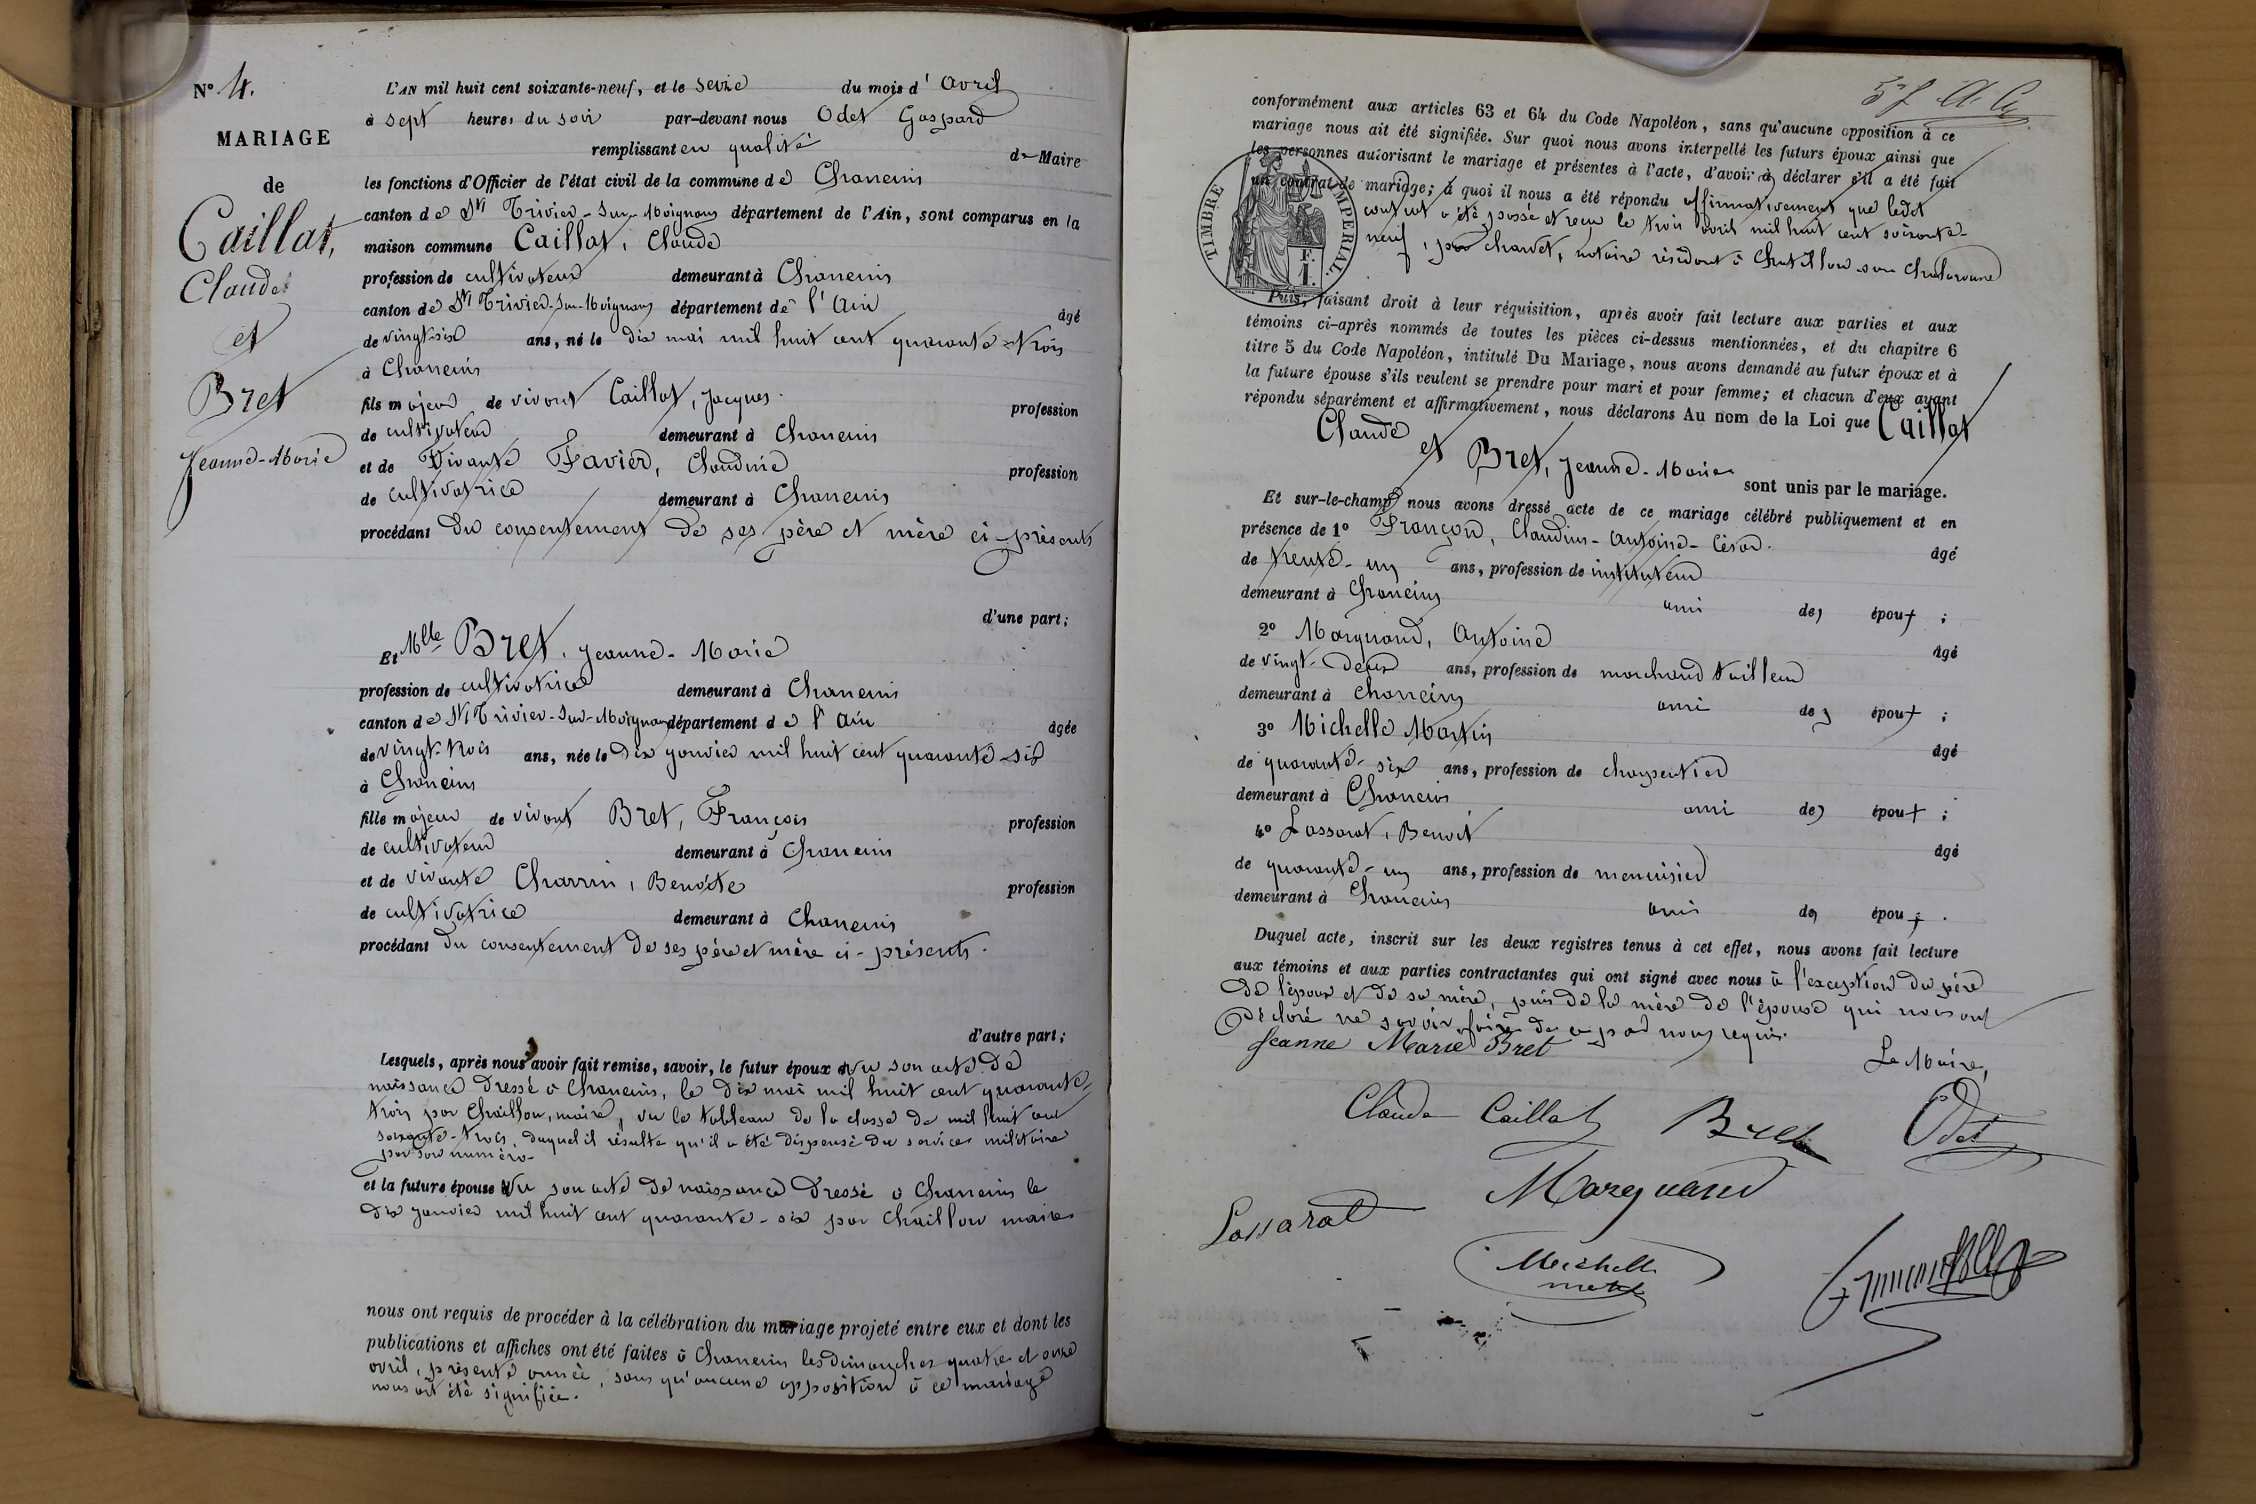 N° 4.
MARIAGE
de
Caillat,
Claude
et
Bret
Jeanne-Marie
L'AN mil huit cent soixante-neuf, et le seize du mois d'avril
à sept heures du soir par-devant nous Odet Gaspard
remplissant en qualité de Maire
les fonctions d'Officier de l'état civil de la commune de Chaneins
canton de St Trivier-sur-Moignans département de l'Ain, sont comparus en la
maison commune Caillat, Claude
profession de cultivateur demeurant à Chaneins
canton de St Trivier-sur-Moignans département de l'Ain âgé
de vingt-six ans, né le dix mai mil huit cent quarante-trois
à Chaneins
fils majeur de vivant Caillat, Jacques. profession
de cultivateur demeurant à Chaneins
et de Vivante Favier, Claudine profession
de cultivatrice demeurant à Chaneins
procédant du consentement de ses père et mère ci-présents
d'une part;
Et Mlle Bret, Jeanne-Marie
profession de cultivatrice demeurant à Chaneins
canton de St Trivier-sur-Moignans département de l'Ain âgée
de vingt-trois ans, née le dix janvier mil huit cent quarante-six
à Chaneins
fille majeur de vivant Bret, François profession
de cultivateur demeurant à Chaneins
et de vivante Charrin, Benoîte profession
de cultivatrice demeurant à Chaneins
procédant du consentement de ses père et mère ci-présents.
d'autre part;
Lesquels, après nous avoir fait remise, savoir, le futur époux Vu son acte de
naissance dressé à Chaneins, le dix mai mil huit cent quarante-
trois par Chaillou, maire, vu le tableau de la classe de mil huit cent
soixante-trois, duquel il résulte qu'il a été dispensé du service militaire
par son numéro-
et la future épouse Vu son acte de naissance dressé à Chaneins le
dix janvier mil huit cent quarante-six par Chaillou maire
nous ont requis de procéder à la célébration du mariage projeté entre eux et dont les
publications et affiches ont été faites à Chaneins les dimanches quatre et onze
avril, présente année, sans qu'aucune opposition à ce mariage
nous ait été signifiée.
conformément aux articles 63 et 64 du Code Napoléon, sans qu'aucune opposition à ce
mariage nous ait été signifiée. Sur quoi nous avons interpellé les futurs époux ainsi que
les personnes autorisant le mariage et présentes à l'acte, d'avoir à déclarer s'il a été fait
un contrat de mariage; à quoi il nous a été répondu affirmativement que ledit
contrat a été passé et reçu le trois avril mil huit cent soixante-
neuf, par Charvet, notaire résidant à Chatillon sur Chalaronne
TIMBRE IMPERIAL.
F.
1.
Puis, faisant droit à leur réquisition, après avoir fait lecture aux parties et aux
témoins ci-après nommés de toutes les pièces ci-dessus mentionnées, et du chapitre 6
titre 5 du Code Napoléon, intitulé Du Mariage, nous avons demandé au futur époux et à
la future épouse s'ils veulent se prendre pour mari et pour femme; et chacun d'eux ayant
répondu séparément et affirmativement, nous déclarons Au nom de la Loi que Caillat
Claude
et Bret, Jeanne-Marie
sont unis par le mariage.
Et sur-le-champ nous avons dressé acte de ce mariage célébré publiquement et en
présence de 1° Françon, Claudius-Antoine-César. âgé
de trente-un ans, profession de instituteur
demeurant à Chaneins ami des époux;
2° Marguand, Antoine âgé
de vingt-deux ans, profession de marchand tailleur
demeurant à Chaneins ami des époux;
3° Michelle Martin âgé
de quarante-six ans, profession de charpentier
demeurant à Chaneins ami des époux;
4° Lassarat, Benoît âgé
de quarante-un ans, profession de menuisier
demeurant à Chaneins ami des époux.
Duquel acte, inscrit sur les deux registres tenus à cet effet, nous avons fait lecture
aux témoins et aux parties contractantes qui ont signé avec nous à l'exception du père
de l'époux et de sa mère, puis de la mère de l'épouse qui nous ont
déclaré ne savoir faire de ce par nous requis.
Jeanne Marie Bret
Le Maire,
Claude Caillat Bret Odet
Marguand
Lassarat
Michelle